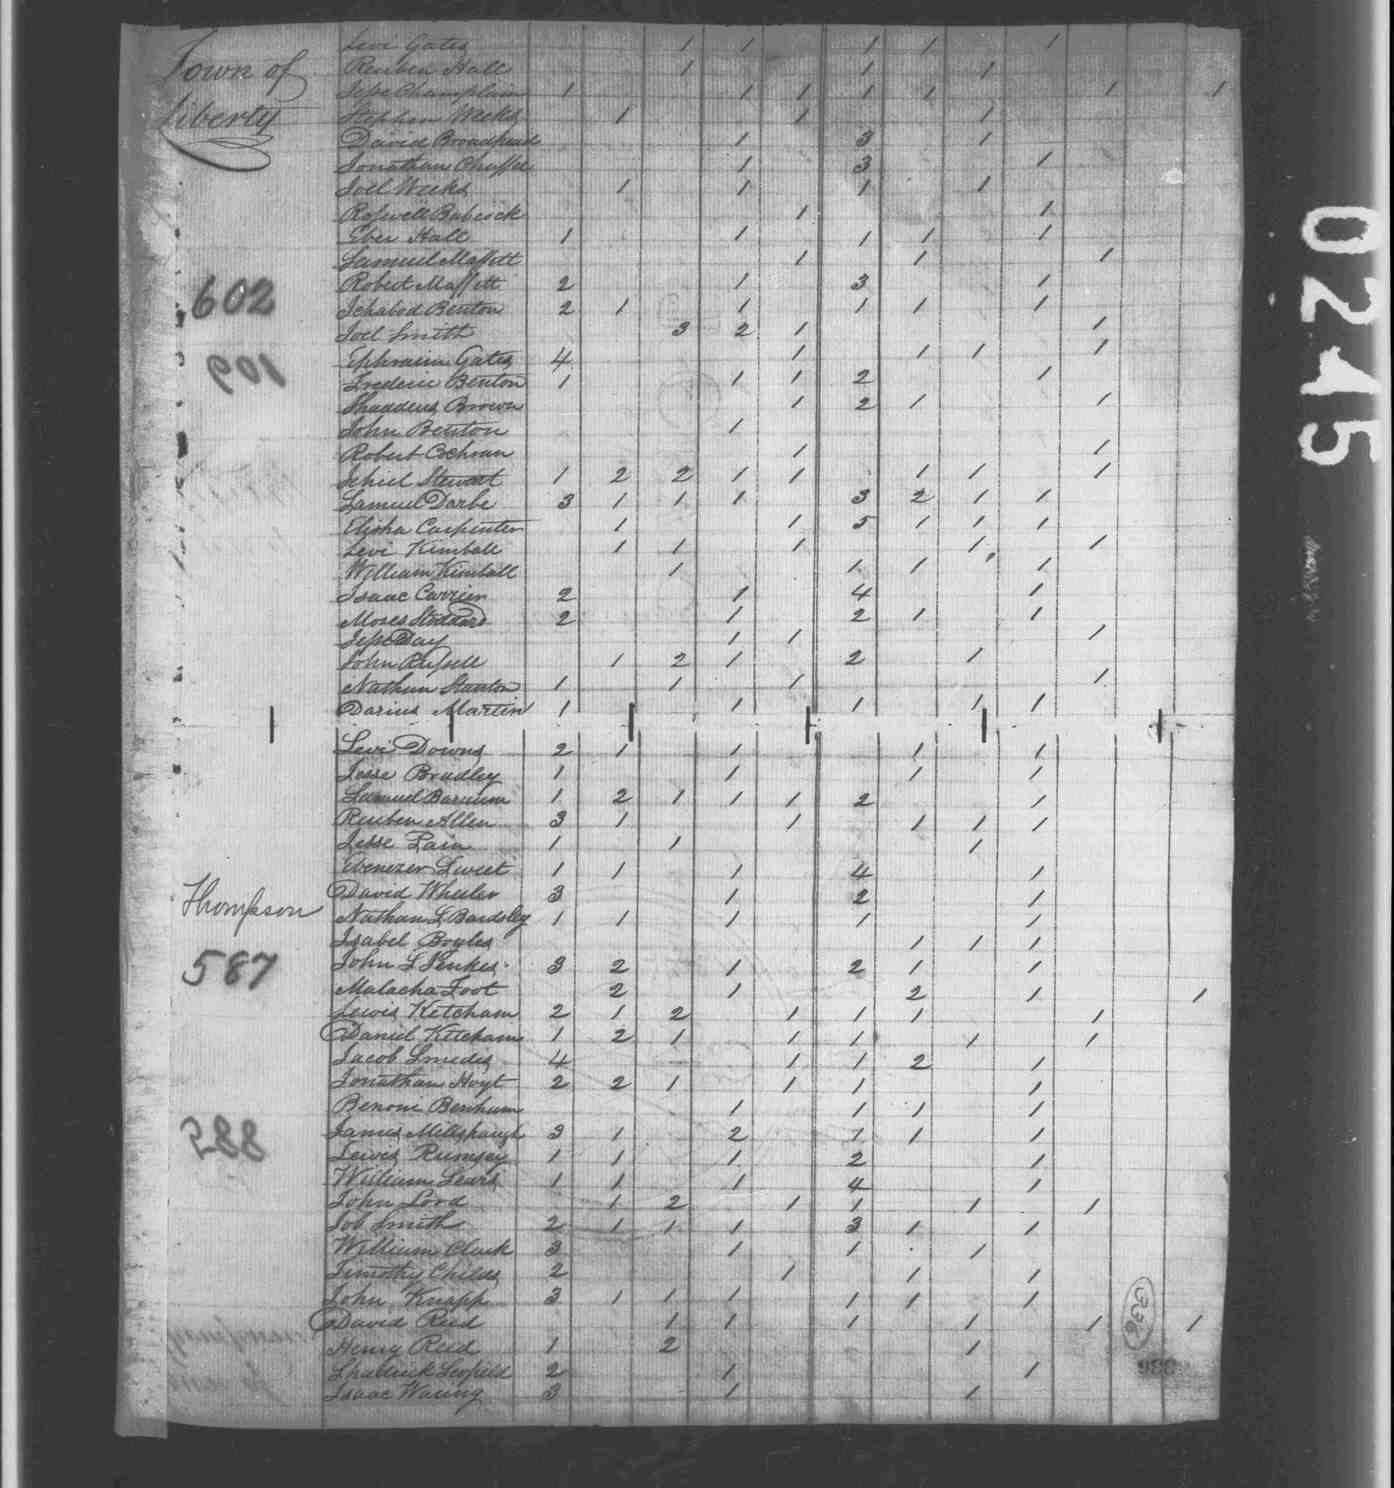 Town of
Liberty
Levi Gates 1 1 1 1 1
Reuben Hall 1 1 1
Jesse Champlain 1 1 1 1 1 1 1
Stephen Weeks 1 1 1
David 1 3 1
Jonathan Chaffee 1 3 1
Joel Weeks 1 1 1 1
Roswell Babcock 1 1
Eber Hall 1 1 1 1 1
Samuel Maffett 1 1 1
602
Robert Maffett 2 1 3 1
Ichabod Benton 2 1 1 1 1 1
Joel Smith 3 2 1 1
109
Ephraim Gates 4 1 1 1 1
Frederic Benton 1 1 1 2 1
Thaddeus Brown 1 2 1 1
John Benton 1
Robert Cochran 1 1
Jehiel Stewart 1 2 2 1 1 1 1 1
Samuel Darbe 3 1 1 1 3 2 1 1
Elisha Carpenter 1 1 5 1 1 1
Levi Kimball 1 1 1 1 1
William Kimball 1 1 1 1
Isaac Carrier 2 1 4 1
Moses Stoddard 2 1 2 1 1
Jesse Day 1 1 1
John Russell 1 2 1 2 1
Nathan Stanton 1 1 1 1
Darius Martin 1 1 1 1 1
Levi Downs 2 1 1 1 1
Jesse Bradley 1 1 1 1
Samuel Barnum 1 2 1 1 1 2 1
Reuben Allen 3 1 1 1 1 1
Jesse Pain 1 1 1
Ebenezer Sweet 1 1 1 4 1
Thompson
David Wheeler 3 1 2 1
Nathan S Bardsley 1 1 1 1 1
Isabel Boyles 1 1 1
587
John S Jenkes 3 2 1 2 1 1
Malacha Foot 2 1 2 1 1
Lewis Ketcham 2 1 2 1 1 1 1
Daniel Ketcham 1 2 1 1 1 1 1
Jacob Smedes 4 1 1 2 1
Jonathan Hoyt 2 2 1 1 1 1
Benoni Benham 1 1 1 1
288
James Millspaugh 3 1 2 1 1 1
Lewis Rumsey 1 1 1 2 1
William Sears 1 1 1 4 1
John Lord 1 2 1 1 1 1
Job Smith 2 1 1 1 3 1 1
William Clark 3 1 1 1
Timothy Childs 2 1 1 1
John Knapp 3 1 1 1 1 1 1
David Reed 1 1 1 1 1 1
Henry Reed 1 2 1
Shadrick Scofield 2 1 1
Isaac Waring 3 1 1
336
0245